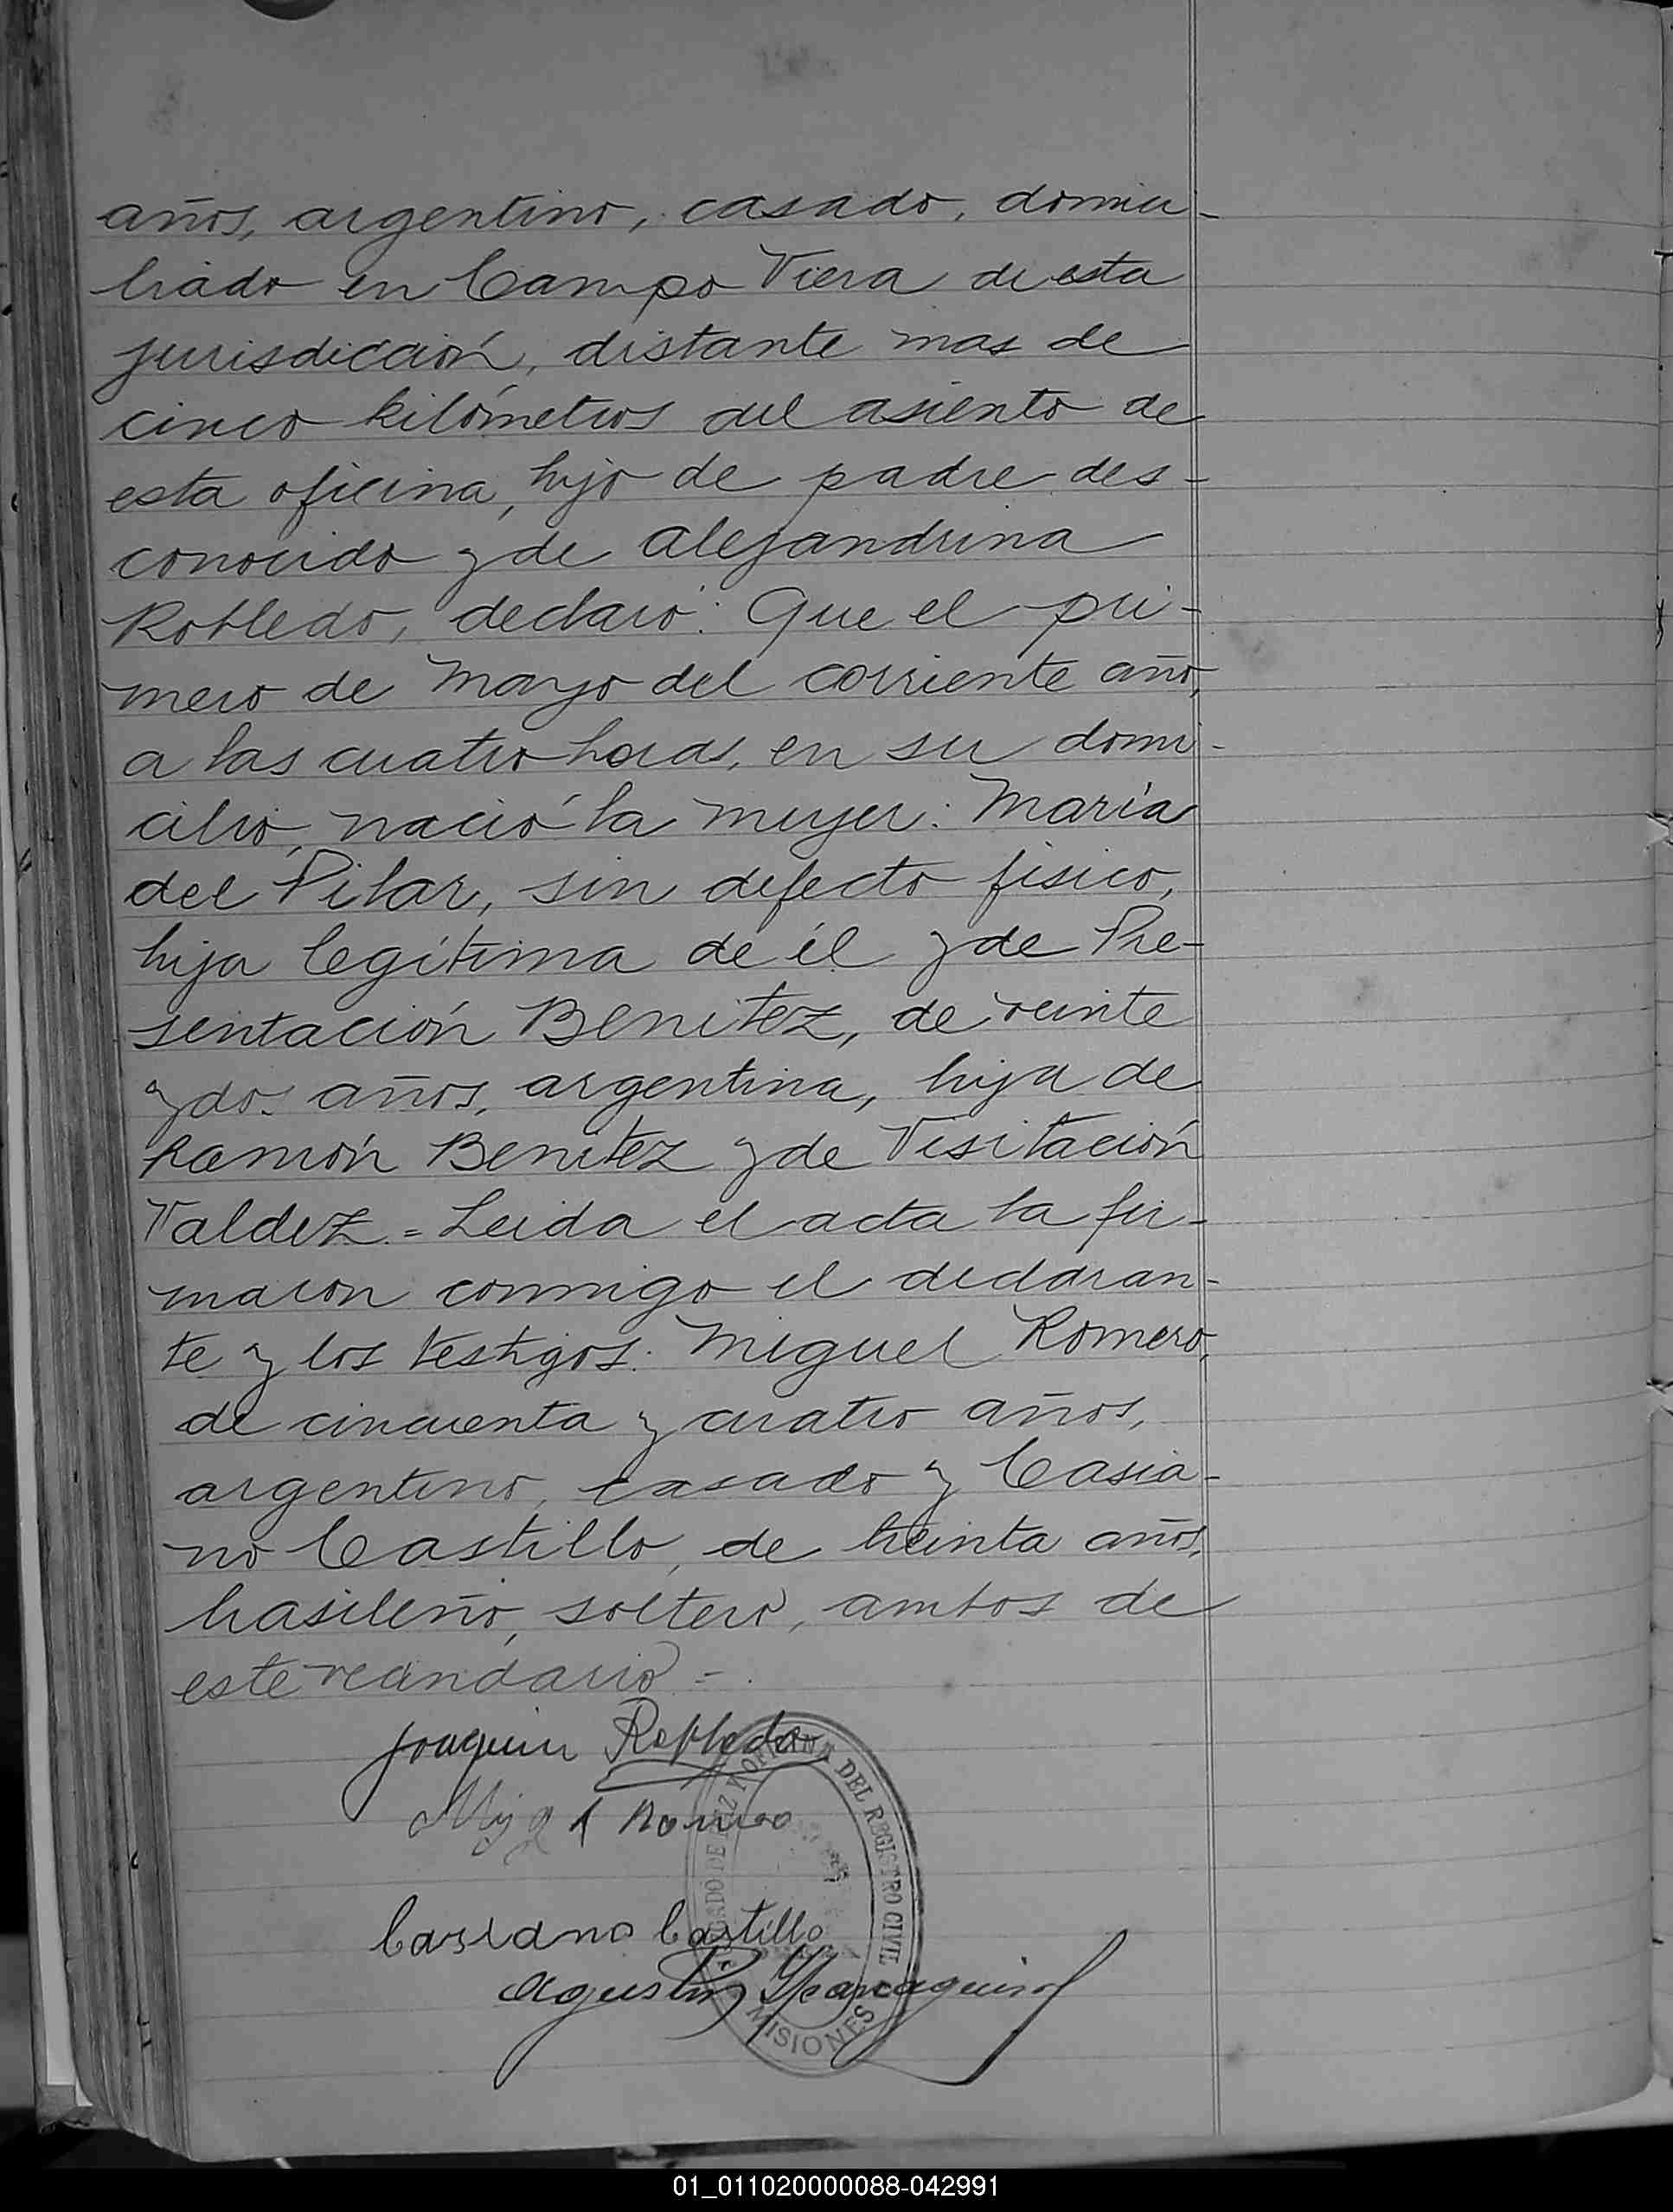 años, argentino, casado, domici-
liado en Campo Viera de esta
jurisdicción, distante mas de
cinco kilómetros del asiento de
esta oficina, hijo de padre des-
conocido y de Alejandrina
Robledo, declaró: Que el pri-
mero de Mayo del corriente año,
a las cuatro horas, en su domi-
cilio, nació la mujer: María
del Pilar, sin defecto físico,
hija legítima de él y de Pre-
sentación Benitez, de veinte
y dos años, argentina, hija de
Ramón Benitez y de Visitación
Valdez.= Leida el acta la fir-
maron conmigo el declaran-
te y los testigos: Miguel Romero,
de cincuenta y cuatro años,
argentino, casado y Casia-
no Castillo, de treinta años,
brasileño, soltero, ambos de
este vecindario =.
Joaquin Robledo
Migel Romero
Casiano Castillo
Agustin
JUZGADO DE PAZ Y OFICINA DEL REGISTRO CIVIL
MISIONES
01_011020000088-042991